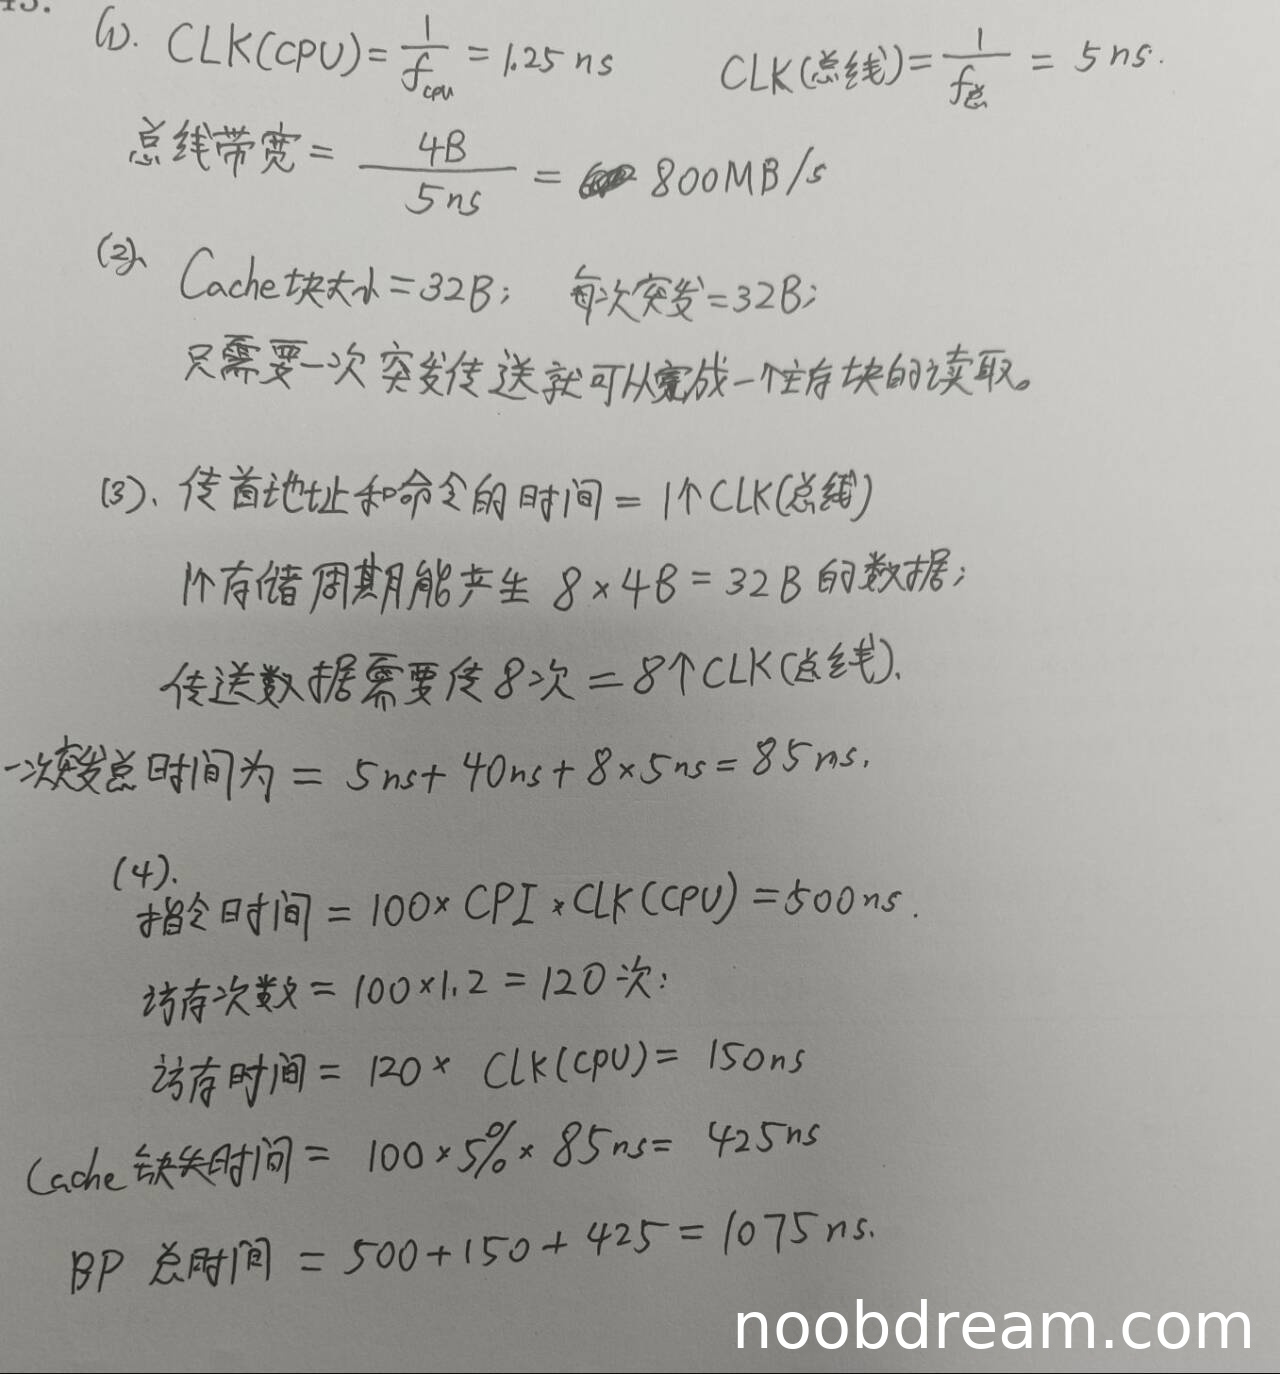 43.
(1). CLK(CPU)=1/fcpu=1.25ns CLK(总线)=1/f总=5ns.
总线带宽=4B/5ns=800MB/s
(2). Cache块大小=32B; 每次突发=32B;
只需要一次突发传送就可以完成一个主存块的读取。
(3). 传首地址和命令的时间=1个CLK(总线)
1个存储周期能产生8×4B=32B的数据;
传送数据需要传8次=8个CLK(总线).
一次突发总时间为=5ns+40ns+8×5ns=85ns.
(4).
指令时间=100×CPI×CLK(CPU)=500ns.
访存次数=100×1.2=120次;
访存时间=120×CLK(CPU)=150ns
Cache缺失时间=100×5%×85ns=425ns
BP总时间=500+150+425=1075ns.
noobdream.com